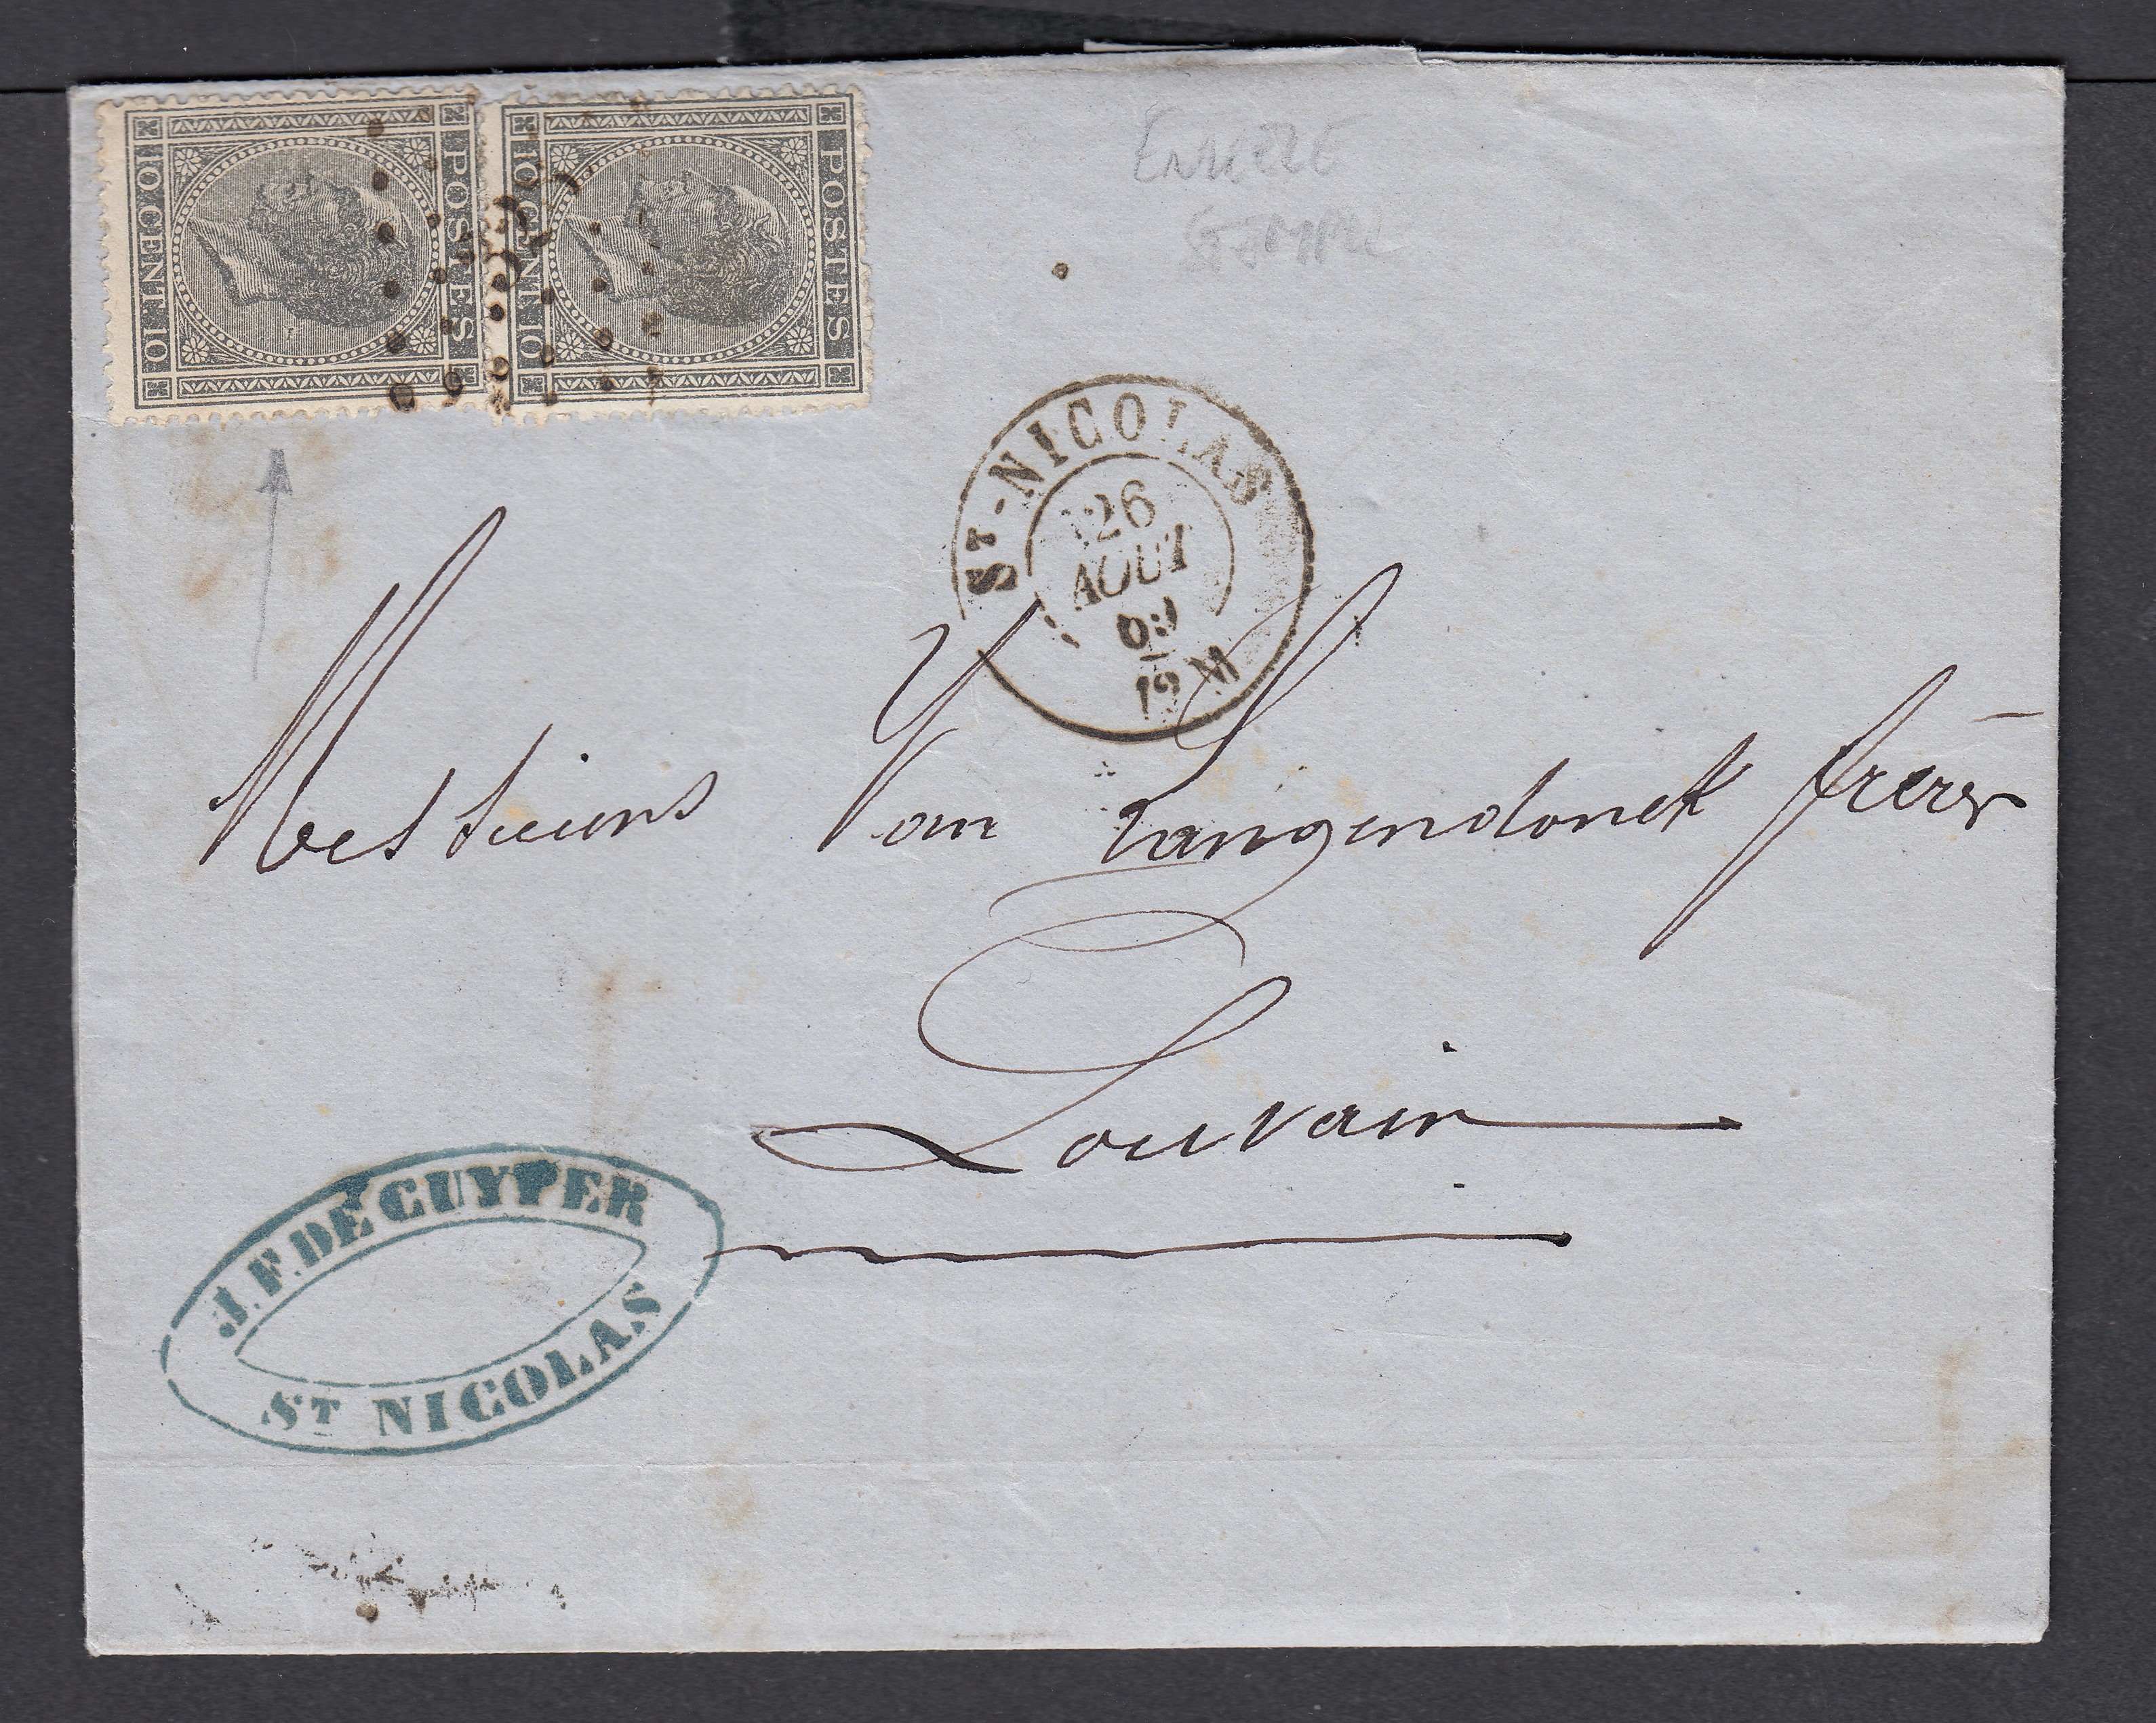 POSTES
10 CENT. 10
POSTES
10 CENT. 10
ST-NICOLAS
26
AOUT
12 M
Messieurs Van Langendonck frères
Louvain
J. F. DE CUYPER
ST NICOLAS